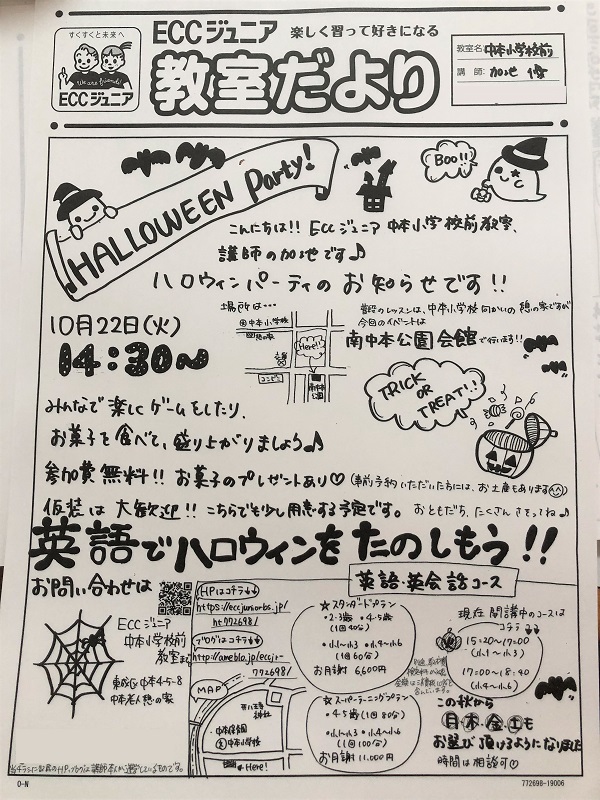 すくすくと未来へ
We are friends!
ECCジュニア
ECCジュニア 楽しく習って好きになる
教室だより
教室名 中本小学校前
講師: 加地
HALLOWEEN Party!
Boo!!
こんにちは!! ECCジュニア 中本小学校前教室、
講師の加地です♪
ハロウィンパーティのお知らせです!!
10月22日(火)
14:30~
場所は…
中本小学校
憩の家
Here!!
コンビニ
南中本公園
普段のレッスンは、中本小学校向かいの憩の家ですが
今回のイベントは
南中本公園会館で行います!!
TRICK OR TREAT!!
みんなで楽しくゲームをしたり、
お菓子を食べて、盛り上がりましょう♪
参加費無料!! お菓子のプレゼントあり♡(事前予約いただいた方には、お土産もあります)
仮装は大歓迎!! こちらでも少し用意する予定です。 おともだち、たくさんさそってね♪
英語でハロウィンをたのしもう!!
お問い合わせは
ECCジュニア
中本小学校前
教室まで
東成区中本4-5-8
中本老人憩の家
HPはコチラ↓↓
https://eccjuniorbs.jp/
ht772698/
ブログはコチラ↓↓
http://ameblo.jp/eccjr-
772698/
MAP
神社
中本保育園
中本小学校
Here!
英語・英会話コース
☆スタンダードプラン
・2・3歳 ・4・5歳
(1回40分)
・小1~小3 ・小4~小6
(1回60分)
お月謝 6,600円
☆スーパーラーニングプラン
・4・5歳(1回80分)
・小1~小3 ・小4~小6
(1回100分)
お月謝 11,000円
現在 開講中のコースは
コチラ↓↓
15:20~17:00
(小1~小3)
17:00~18:40
(小4~小6)
この秋から
月・木・金・土も
お選び頂けるようになりました
時間は相談可♡
当チラシに記載のHP、ブログは講師本人が運営しているものです。
O-N
772698-19006